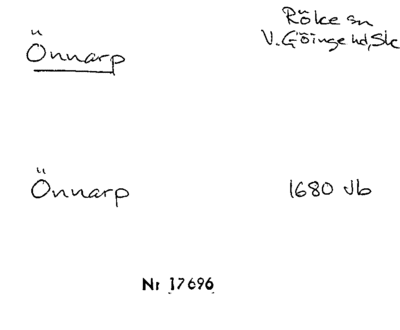 Önnarp
Röke sn
V. Göinge hd, Sk
Önnarp
1680 Jb
Nr 17696